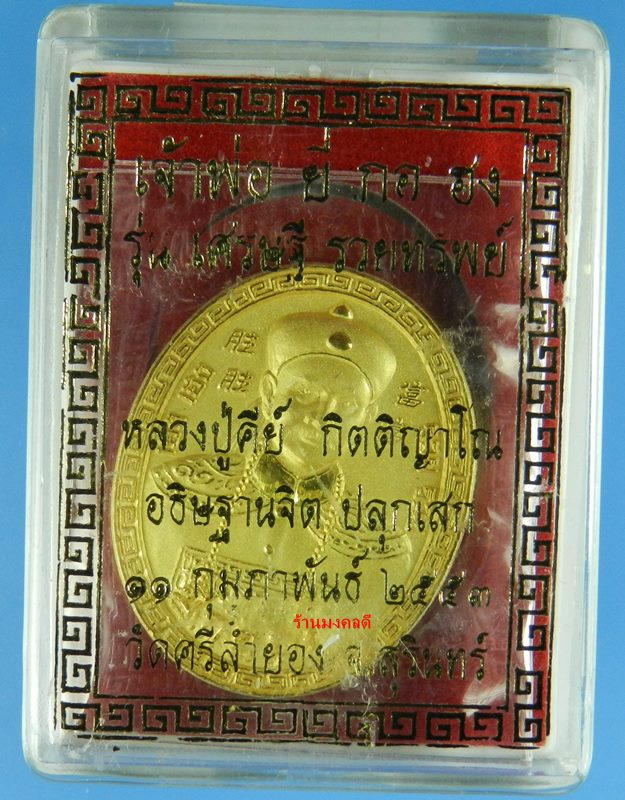 เจ้าพ่อ ยี่ กอ ฮง
รุ่น เศรษฐี รวยทรัพย์
หลวงปู่คีย์ กิตติญาโณ
อธิษฐานจิต ปลุกเสก
๑๑ กุมภาพันธ์ ๒๕๕๓
ร้านมงคลดี
วัดศรีลำยอง จ.สุรินทร์